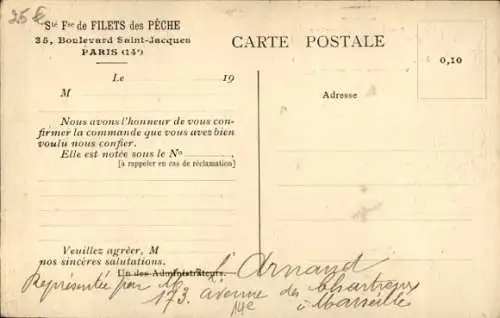 25 €
Sté Fse de FILETS des PÊCHE
35, Boulevard Saint-Jacques
PARIS (14e)
CARTE POSTALE
0,10
Le 19
M
Adresse
Nous avons l'honneur de vous con-
firmer la commande que vous avez bien
voulu nous confier.
Elle est notée sous le No
[à rappeler en cas de réclamation]
Veuillez agréer, M
nos sincères salutations.
Un des Administrateurs.
Représentée par M. l. Arnaud
173. avenue des Chartreux
14e à Marseille